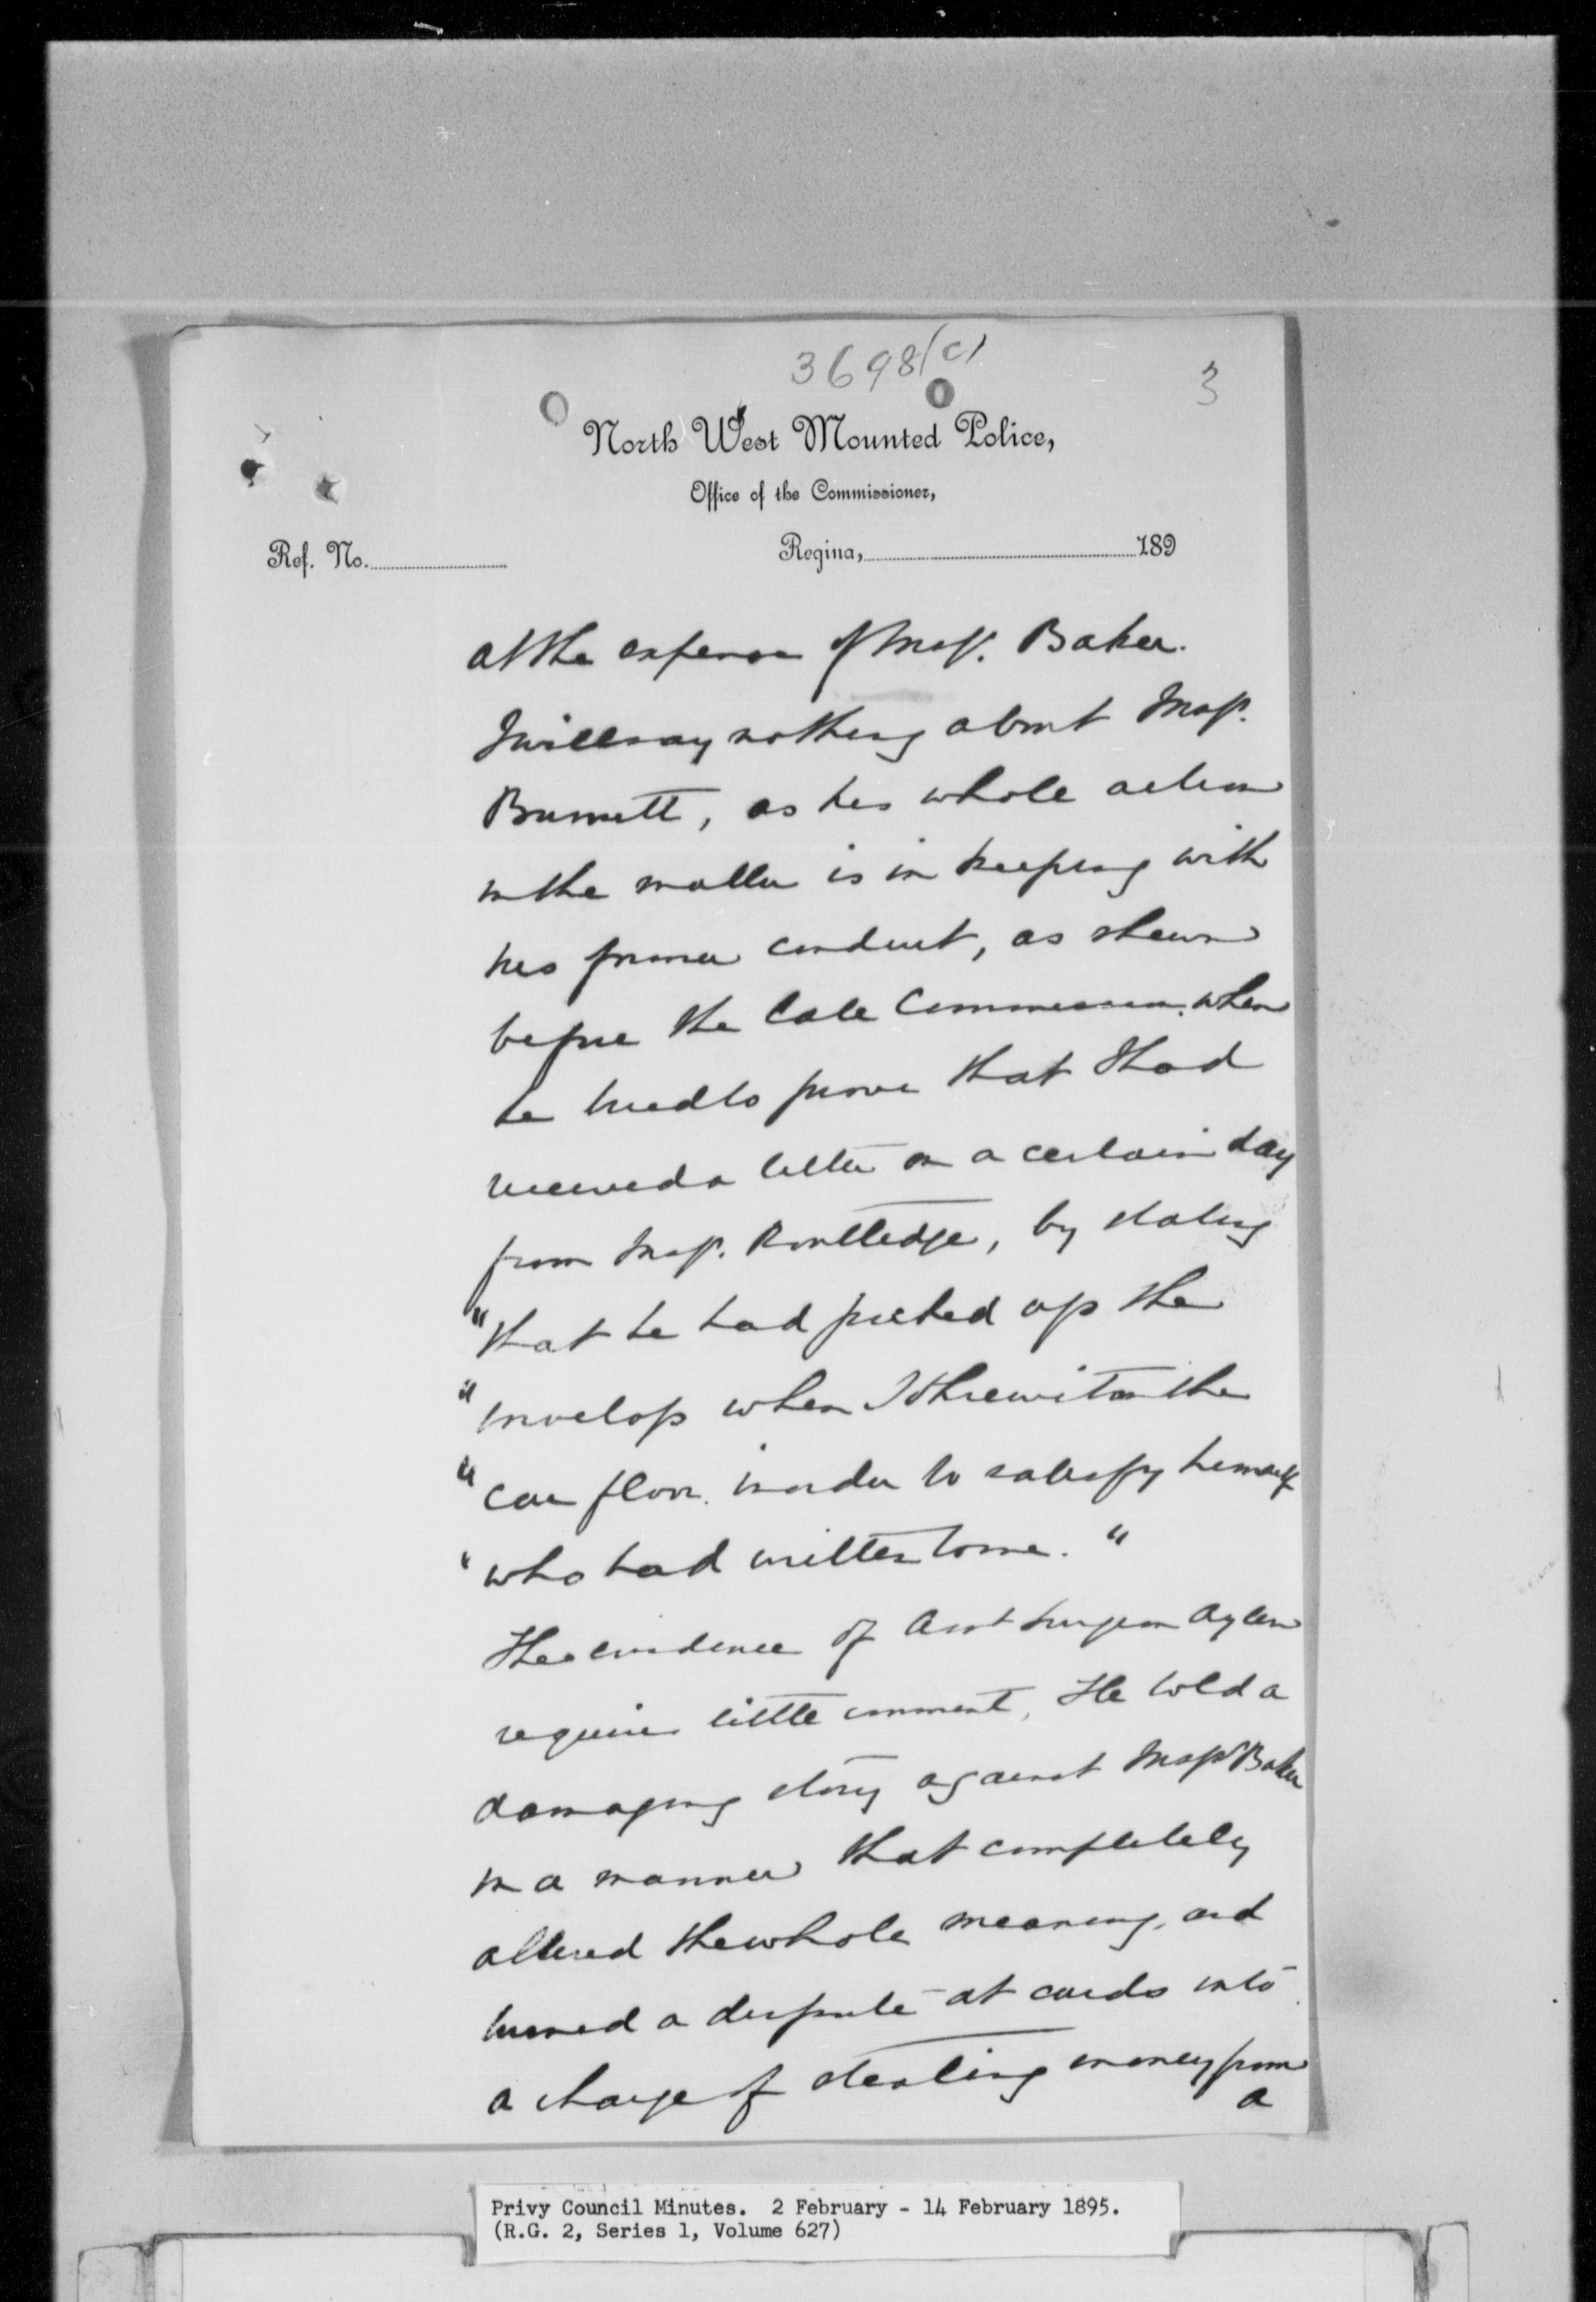 3698(c)
3
North West Mounted Police,
Office of the Commissioner,
Ref. No.
Regina, 189
at the expense of Insp. Baker.
I will say nothing about Insp.
Burnett, as his whole action
in the matter is in keeping with
his former conduct, as shewn
before the late Commission, when
he tried to prove that I had
received a letter on a certain day
from Insp. Routledge, by stating
"that he had picked up the
"envelop when I threw it on the
"car floor in order to satisfy himself
"who had written to me."
The evidence of Asst Surgeon Aylen
requires little comment, He told a
damaging story against Inspr Baker
in a manner that completely
altered the whole meaning, and
turned a dispute at cards into
a charge of stealing money from
a
Privy Council Minutes. 2 February - 14 February 1895.
(R.G. 2, Series 1, Volume 627)